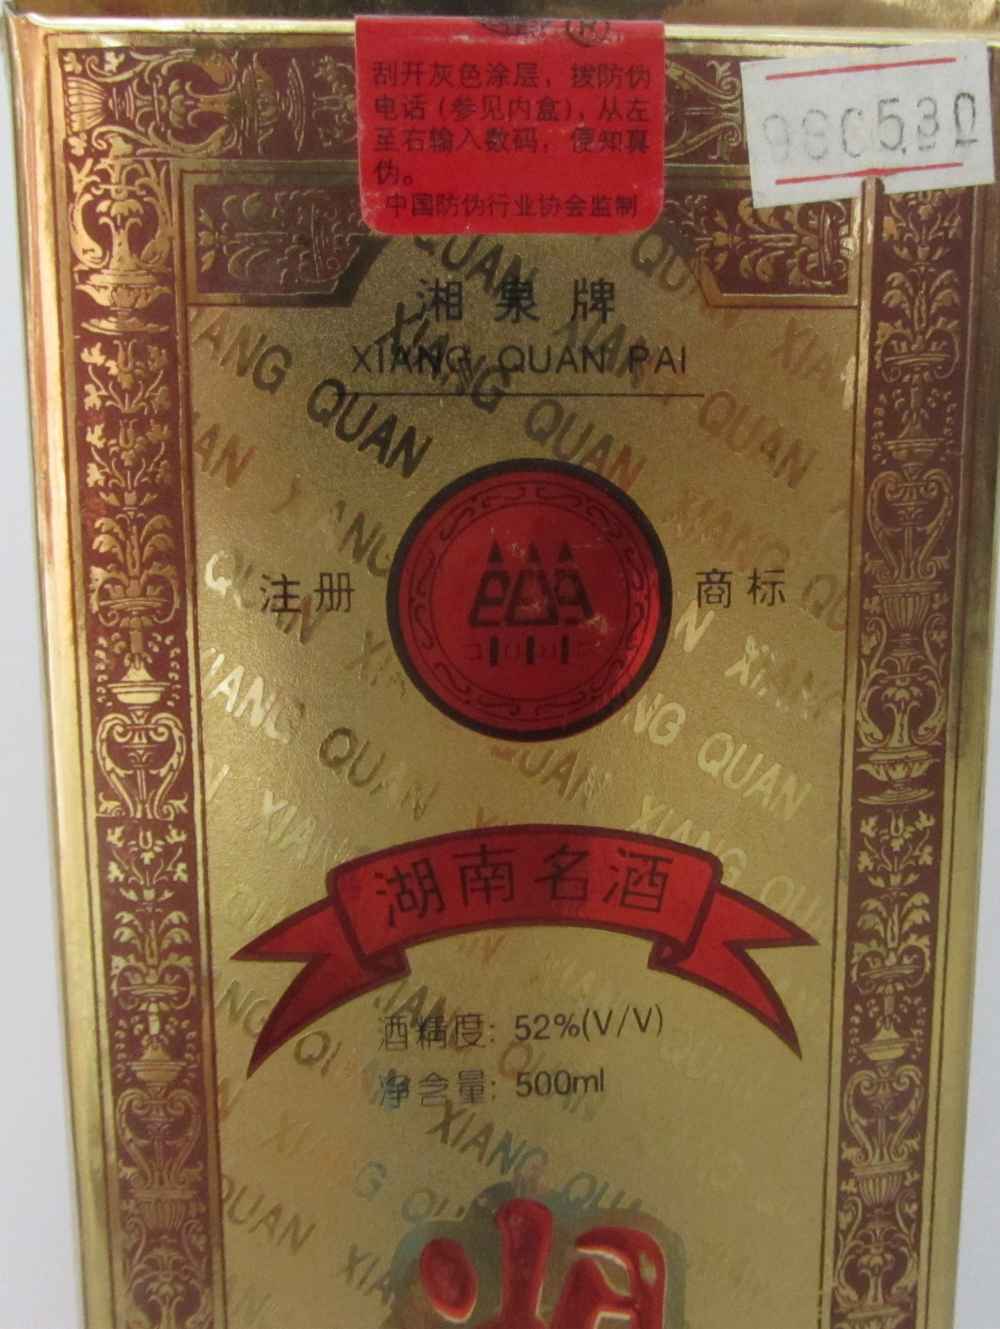 刮开灰色涂层，拨防伪
电话(参见内盒)，从左
至右输入数码，便知真
伪。
中国防伪行业协会监制
980530
湘泉牌
XIANG QUAN PAI
注册 商标
湖南名酒
酒精度: 52%(V/V)
净含量: 500ml
XIANG QUAN